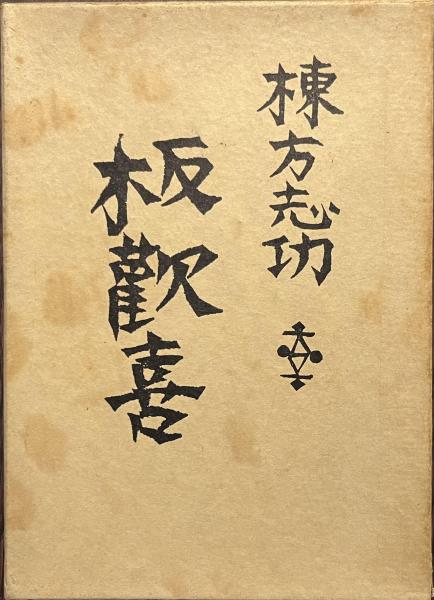 棟方志功
板歡喜